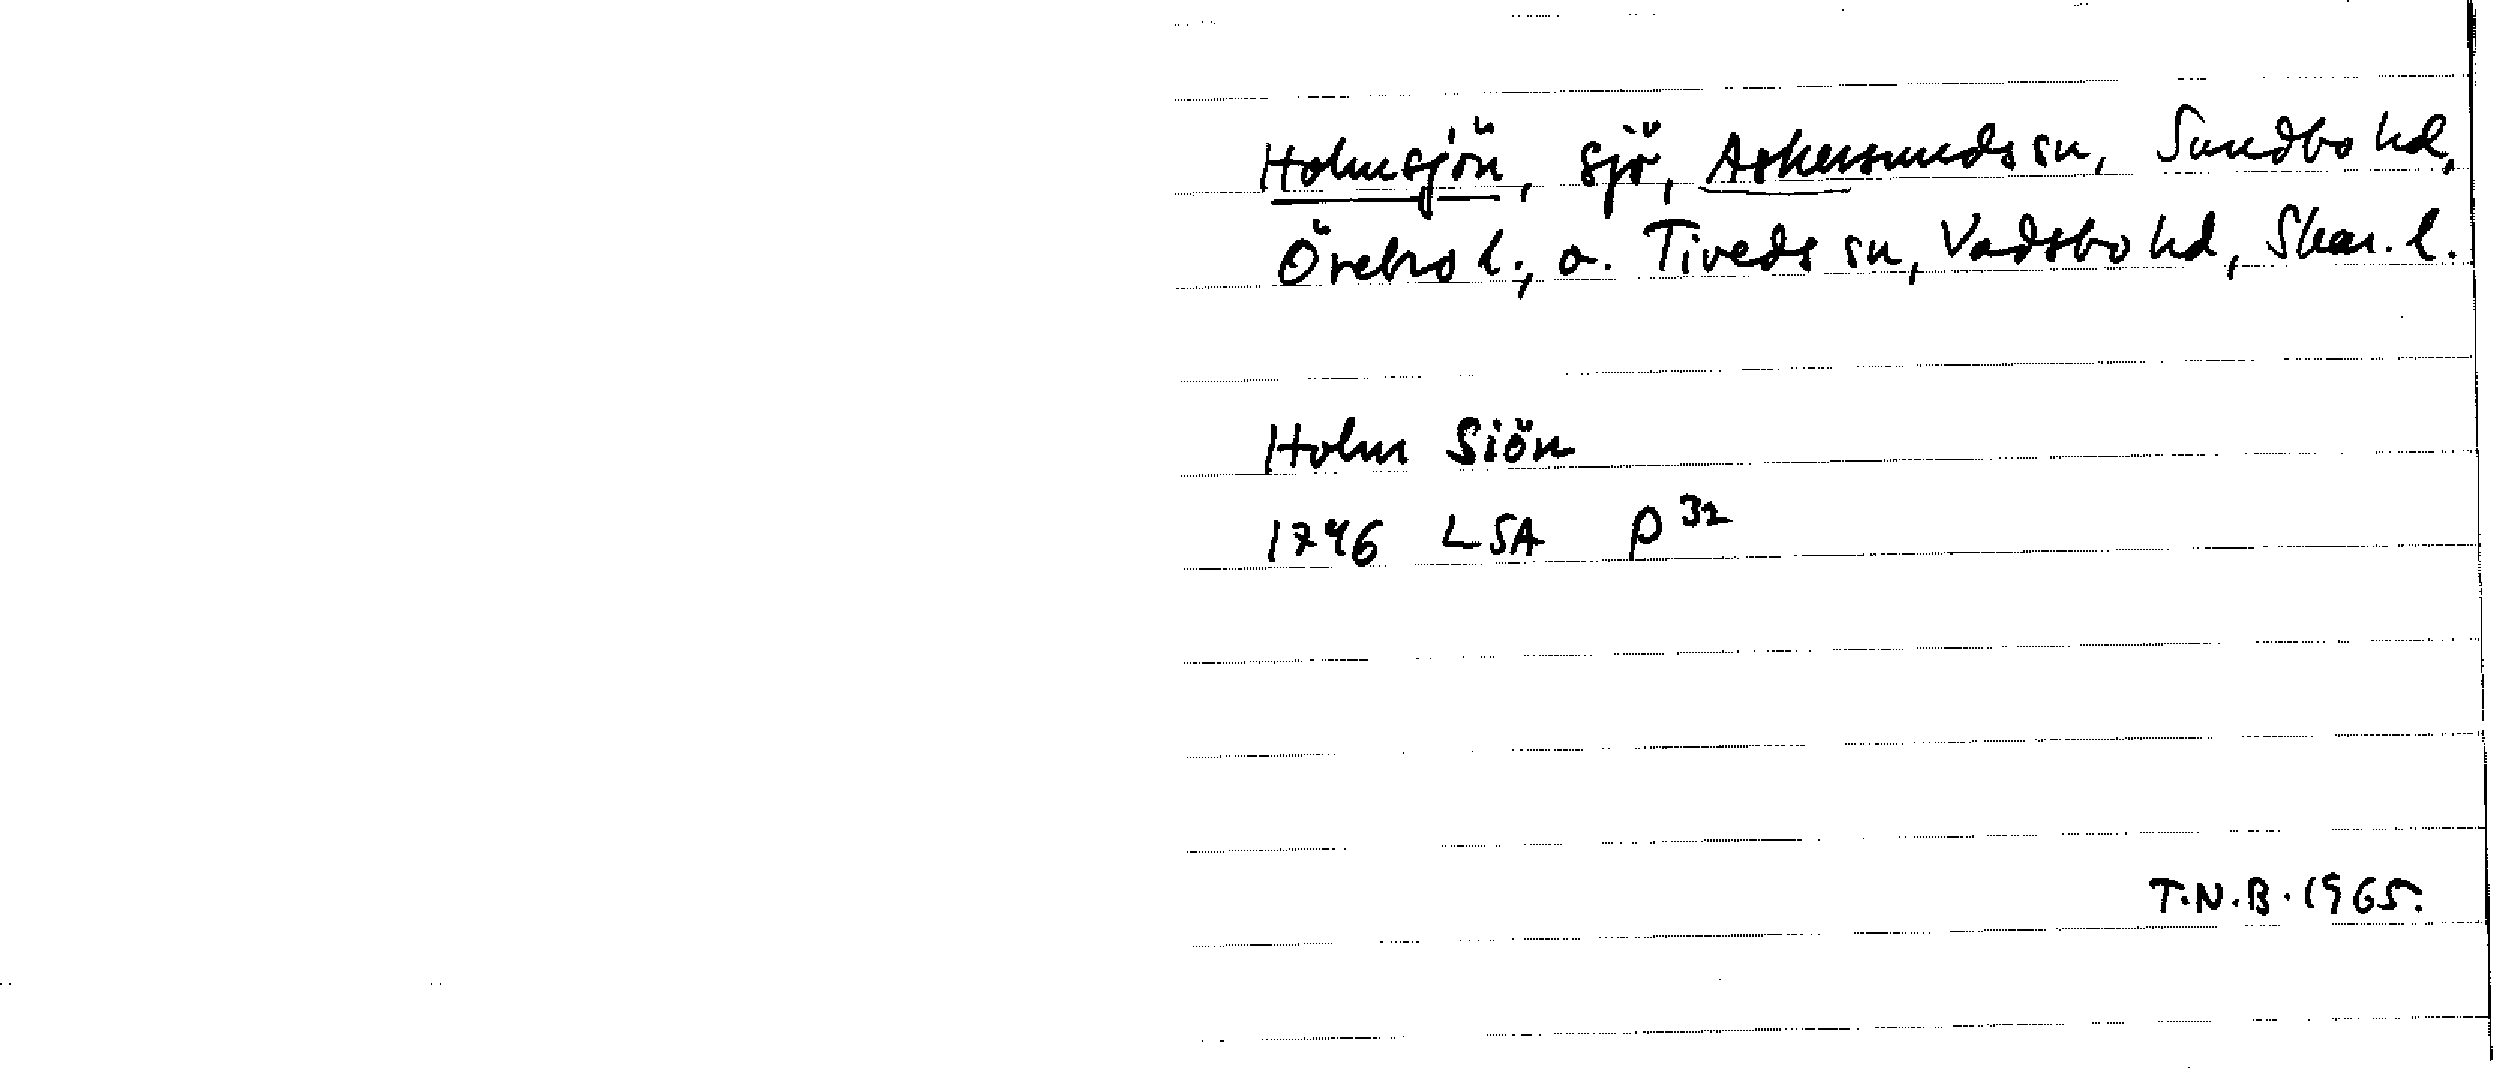 Holmsjön, sjö, Askersunds sn, Sundbo hd,
Örebro l., o. Tiveds sn, Vadsbo hd, Skar. l.
Holm Siön
1746 LSA P 32
T.N.B. 1965.